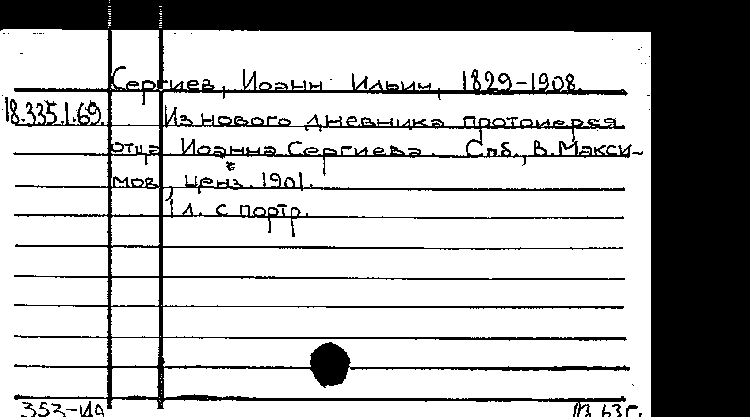 Сергиев, Иоанн Ильич, 1829-1908.
18.335.1.69. Из нового дневника протоиерея
отца Иоанна Сергиева. Спб., В. Макси-
мов, ценз.* 1901.
1 л. с портр.
353-Ил 63г.